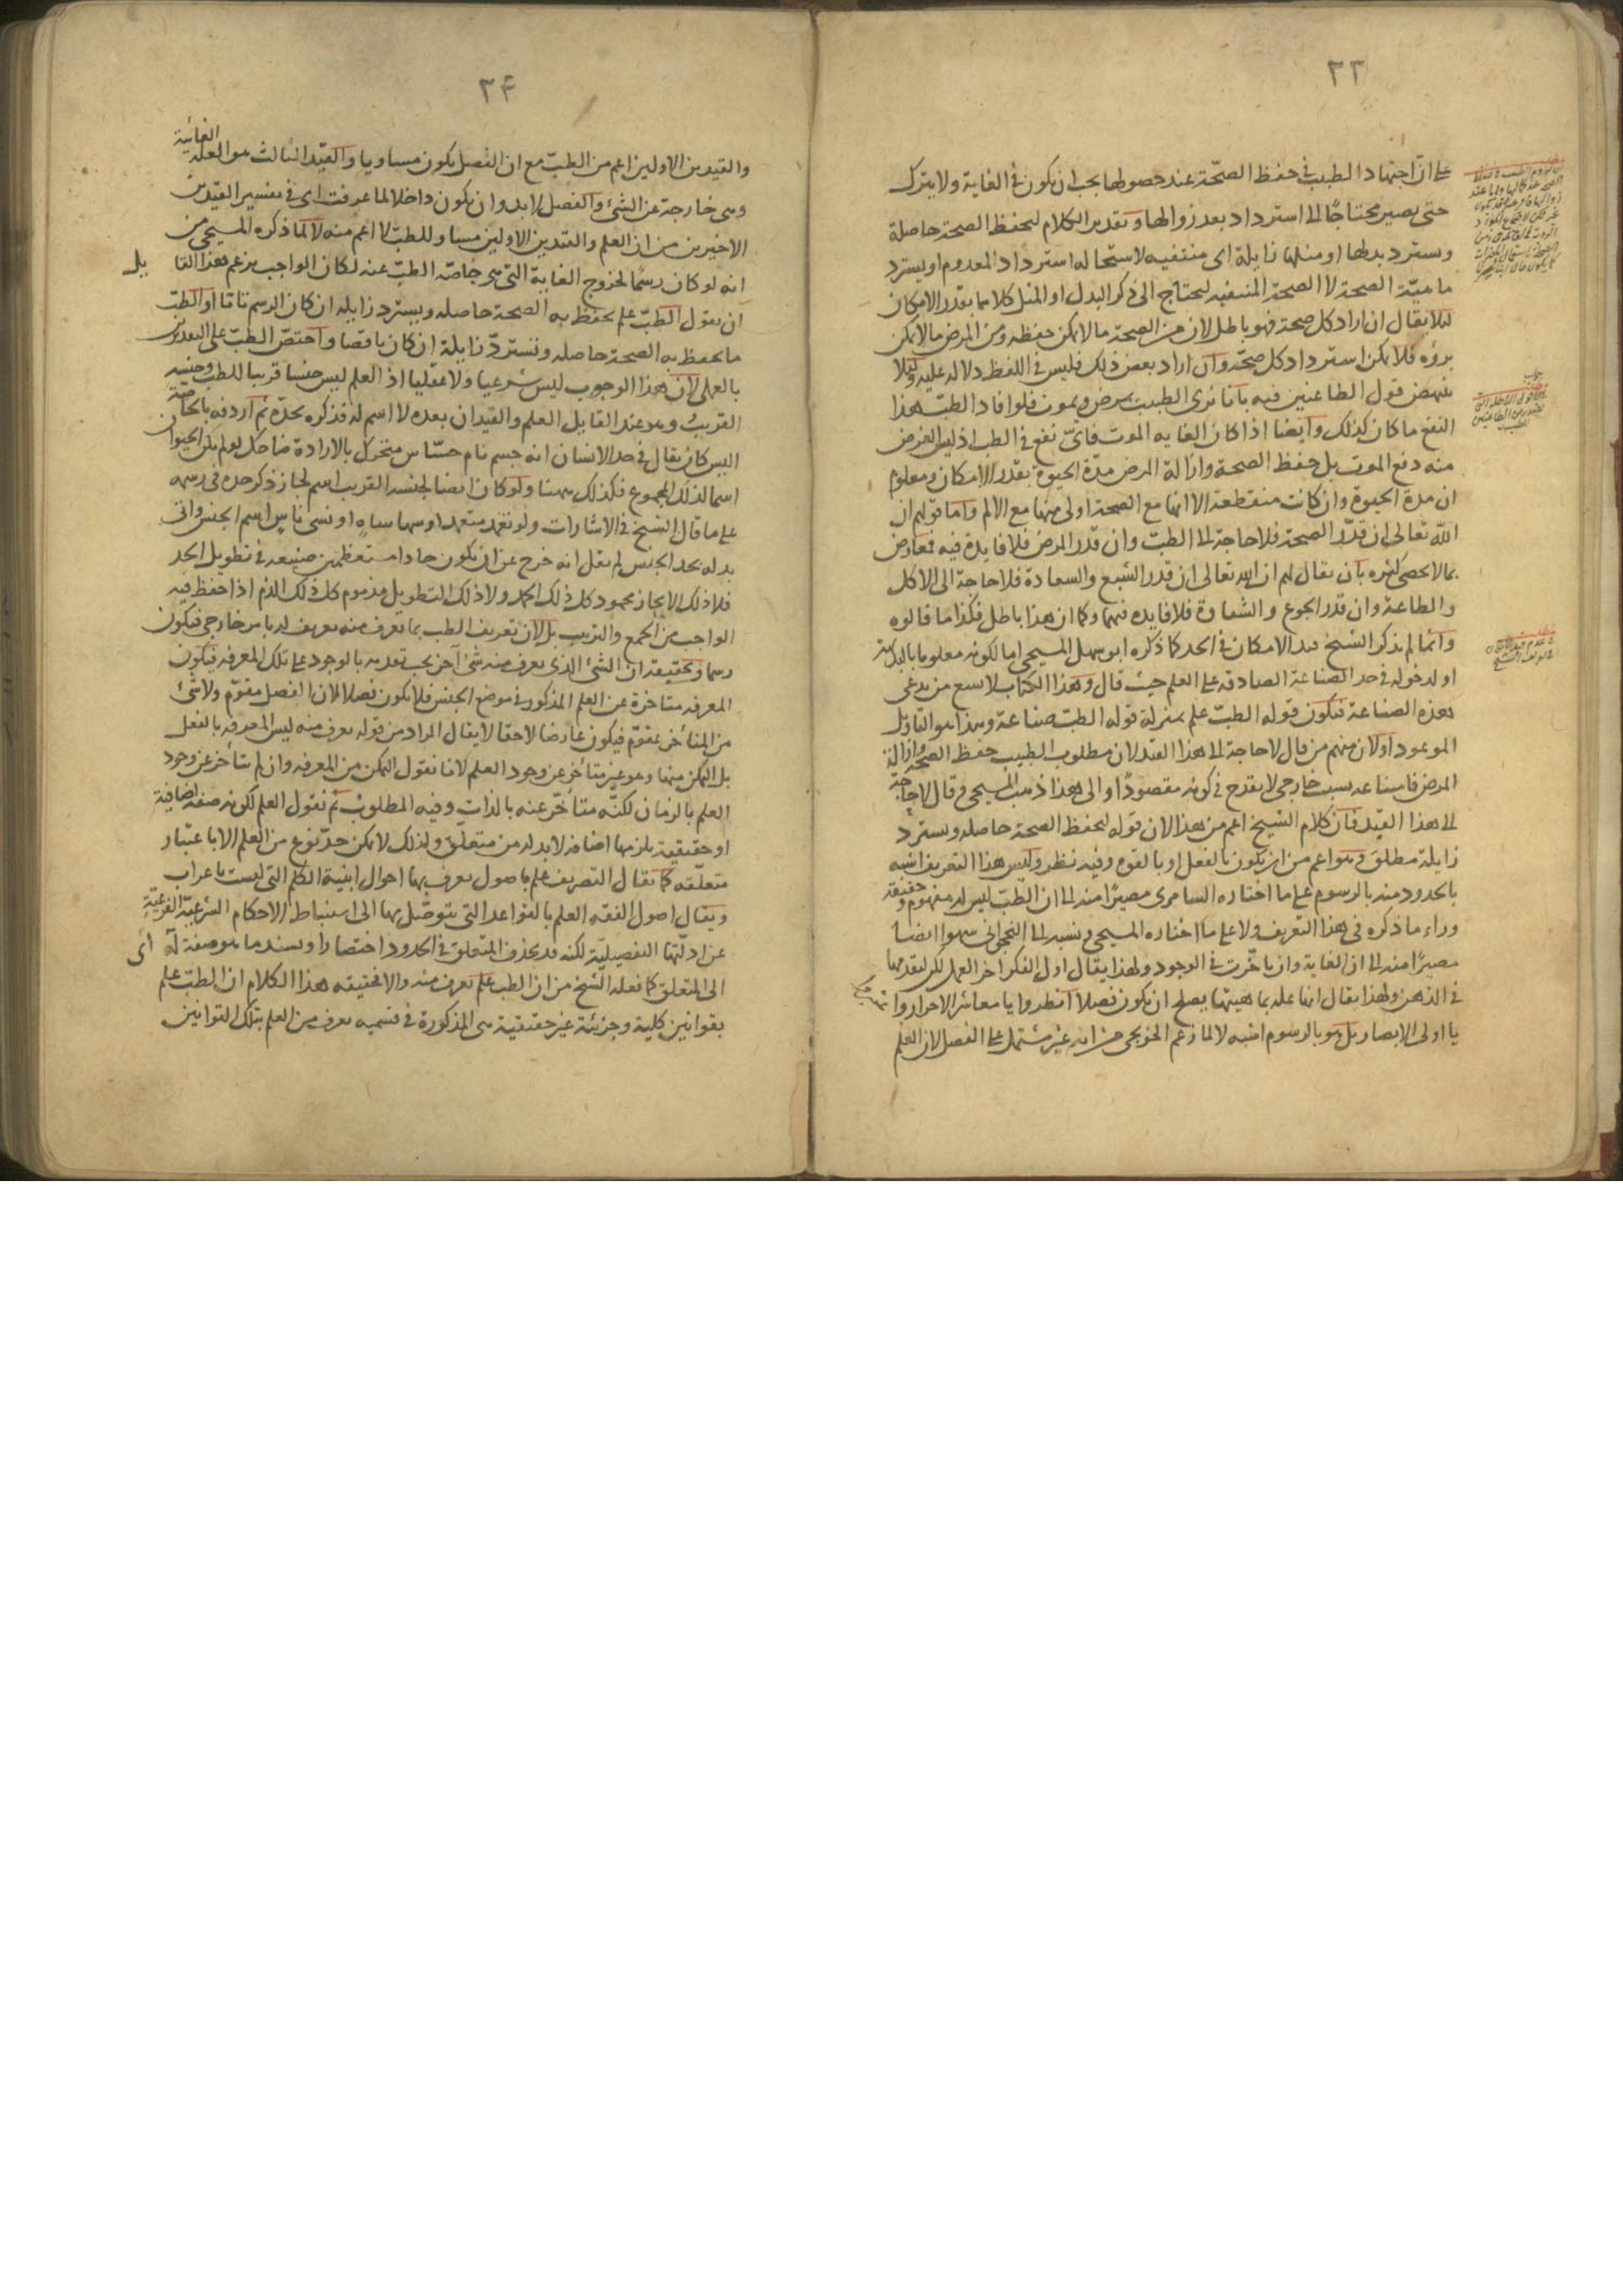 ٢٣
على ان اجتهاد الطبيب فى حفظ الصحّة عند حصولها يجب ان يكون فى الغاية ولا يترك
حتى يصير محتاجًا الى استرداد بعد زوالها وتقدير الكلام ليحفظ الصحة حاصلة
ويسترد بدلها او مثلها زايلة اى منتفيه لاستحاله استرداد المعدوم او يسترد
ماهيّة الصحة لا الصحة المنتفيه ليحتاج الى ذكر البدل او المثل كلاهما بقدر الامكان
لئلا يقال ان اراد كل صحة فهو باطل لان من الصحة ما لا يمكن حفظه ومن المرض ما لا يمكن
برؤه فلا يمكن استرداد كل صحّة وان اراد بعض ذلك فليس فى اللفظ دلاله عليه ولئلا
ينهض قول الطاعنين فيه بانا نرى الطبيب يمرض ويموت فلو افاد الطب هذا
النفع ما كان كذلك وايضا اذا كان الغايه الموت فاىّ نفع فى الطب اذ ليس الغرض
منه دفع الموت بل حفظ الصحة وازالة المرض مدّة الحيوة بقدر الامكان ومعلوم
ان مدة الحيوة وان كانت منقطعة الا انها مع الصحة اولى منها مع الالم واما قولهم ان
الله تعالى ان قدّر الصحة فلا حاجة الى الطب وان قدر المرض فلا فايدة فيه فمعارض
بما لا يحصى كثره بان يقال لهم ان الله تعالى ان قدر الشبع والسعادة فلا حاجة الى الاكل
والطاعة وان قدر الجوع والشقاوة فلا فايده فيهما وكما ان هذا باطل فكذا ما قالوه
وانما لم يذكر الشيخ قيد الامكان فى الحد كما ذكره ابو سهل المسيحى اما لكونه معلوما بالبديهة
او لدخوله فى حد الصناعة الصادقه على العلم حيث قال وهذا الكتاب لا يسع من يدعى
هذه الصناعة فيكون قوله الطبّ علم بمنزلة قوله الطب صناعة وهذا هو التأويل
الموعود او لان منهم من قال لا حاجة الى هذا القيد لان مطلوب الطبيب حفظ الصحة وازالة
المرض فامتناعه بسبب خارجى لا يقدح فى كونه مقصودًا والى هذا ذهب المسيحى وقال لا حاجة
الى هذا القيد فان كلام الشيخ اعم من هذا لان قوله ليحفظ الصحة حاصله ويسترد
زايلة مطلق وهو اعم من ان يكون بالفعل او بالقوه وفيه نظر وليس هذا التعريف اشبه
بالحدود منه بالرسوم على ما اختاره السامرى مصيرًا منه الى ان الطبّ ليس له مفهوم وحقيقة
وراء ما ذكره فى هذا التعريف ولا على ما اختاره المسيحى ونسبه الى النجوانى سهوا ايضا
مصيرًا منه الى ان الغاية وان تاخّرت فى الوجود ولهذا يقال اول الفكر اخر العمل لكن لتقدمها
فى الذهن ولهذا يقال انها علة بماهيتها يصلح ان يكون فصلا انظروا يا معاشر الاحرار واعتبروا
يا اولى الابصار بل هو بالرسوم اشبه لا لما زعم الخونجى من انه غير مشتمل على الفصل لان العلم
٢٤
والقيدين الاولين اعم من الطبّ مع ان الفصل يكون مساويا والقيد الثالث هو العلة الغائية
وهى خارجة عن الشئ والفصل لا بد وان يكون داخلا لما عرفت اى فى تفسير القيدين
الاخيرين من ان العلم والقيدين الاولين مساو للطبّ لا اعم منه لا لما ذكره المسيحى من
انه لو كان رسمًا لخروج الغاية التى هى خاصّة الطبّ عنه لكان الواجب بزعم هذا القايل
ان يقول الطبّ علم يحفظ به الصحة حاصله ويسترد زايله ان كان الرسم تاما او الطبّ
ما يحفظ به الصحة حاصله ويستردّ زايلة ان كان ناقصا واختصّ الطبّ على التقديرين
بالعلم لان هذا الوجوب ليس شرعيا ولا عقليا اذ العلم ليس جنسا قريبا للطب وجنسه
القريب وهو عند القايل العلم والقيدان بعده لا اسم له فذكره بحدّه ثم اردفه بالخاصة
اليس كان يقال فى حد الانسان انه جسم نام حسّاس متحرك بالارادة ضاحك لو لم يكن الحيوان
اسما لذلك المجموع فكذلك ههنا ولو كان ايضا لجنسه القريب اسم لجاز ذكر حده فى رسمه
على ما قال الشيخ فى الاشارات ولو تعمد متعمد او سها ساهٍ او نسى ناسٍ اسم الجنس واتى
بدله بحد الجنس لم يقل انه خرج عن ان يكون حادا مستعظمين صنيعه فى تطويل الحد
فلا ذلك الايجاز محمود كل ذلك الحمد ولا ذلك التطويل مذموم كل ذلك الذم اذا حفظ فيه
الواجب من الجمع والترتيب بل لان تعريف الطب بما يعرف منه تعريف له بامر خارجى فيكون
رسما وتحقيقه ان الشئ الذى يعرف منه شئ آخر يجب تقدمه بالوجود على تلك المعرفه فيكون
المعرفه متاخرة عن العلم المذكور فى موضع الجنس فلا يكون فصلا لان الفصل مقوّم ولا شئ
من المتأخر بمقوّم فيكون عارضا لاحقا لا يقال المراد من قوله يعرف منه ليس المعرفه بالفعل
بل التمكن منها وهو غير متأخر عن وجود العلم لانا نقول التمكن من المعرفه وان لم يتأخر عن وجود
العلم بالزمان لكنّه متأخّر عنه بالذات وفيه المطلوب ثم نقول العلم لكونه صفة اضافية
او حقيقية يلزمها اضافه لا بد له من متعلّق ولذلك لا يمكن حدّ نوع من العلم الا باعتبار
متعلّقه كما يقال التصريف علم باصول يعرف بها احوال ابنية الكلم التى ليست باعراب
ويقال اصول الفقه العلم بالقواعد التى يتوصّل بها الى استنباط الاحكام الشرعيّة الفرعيّة
عن ادلّتها التفصيليّة لكنه قد يحذف المتعلق فى الحدود اختصارا ويسند ما هو صفة له اى
الى المتعلق كما فعله الشيخ من ان الطب علم يعرف منه والا فحقيقه هذا الكلام ان الطبّ علم
بقوانين كلية وجزئية غير حقيقية هى المذكورة فى قسميه يعرف من العلم بتلك القوانين